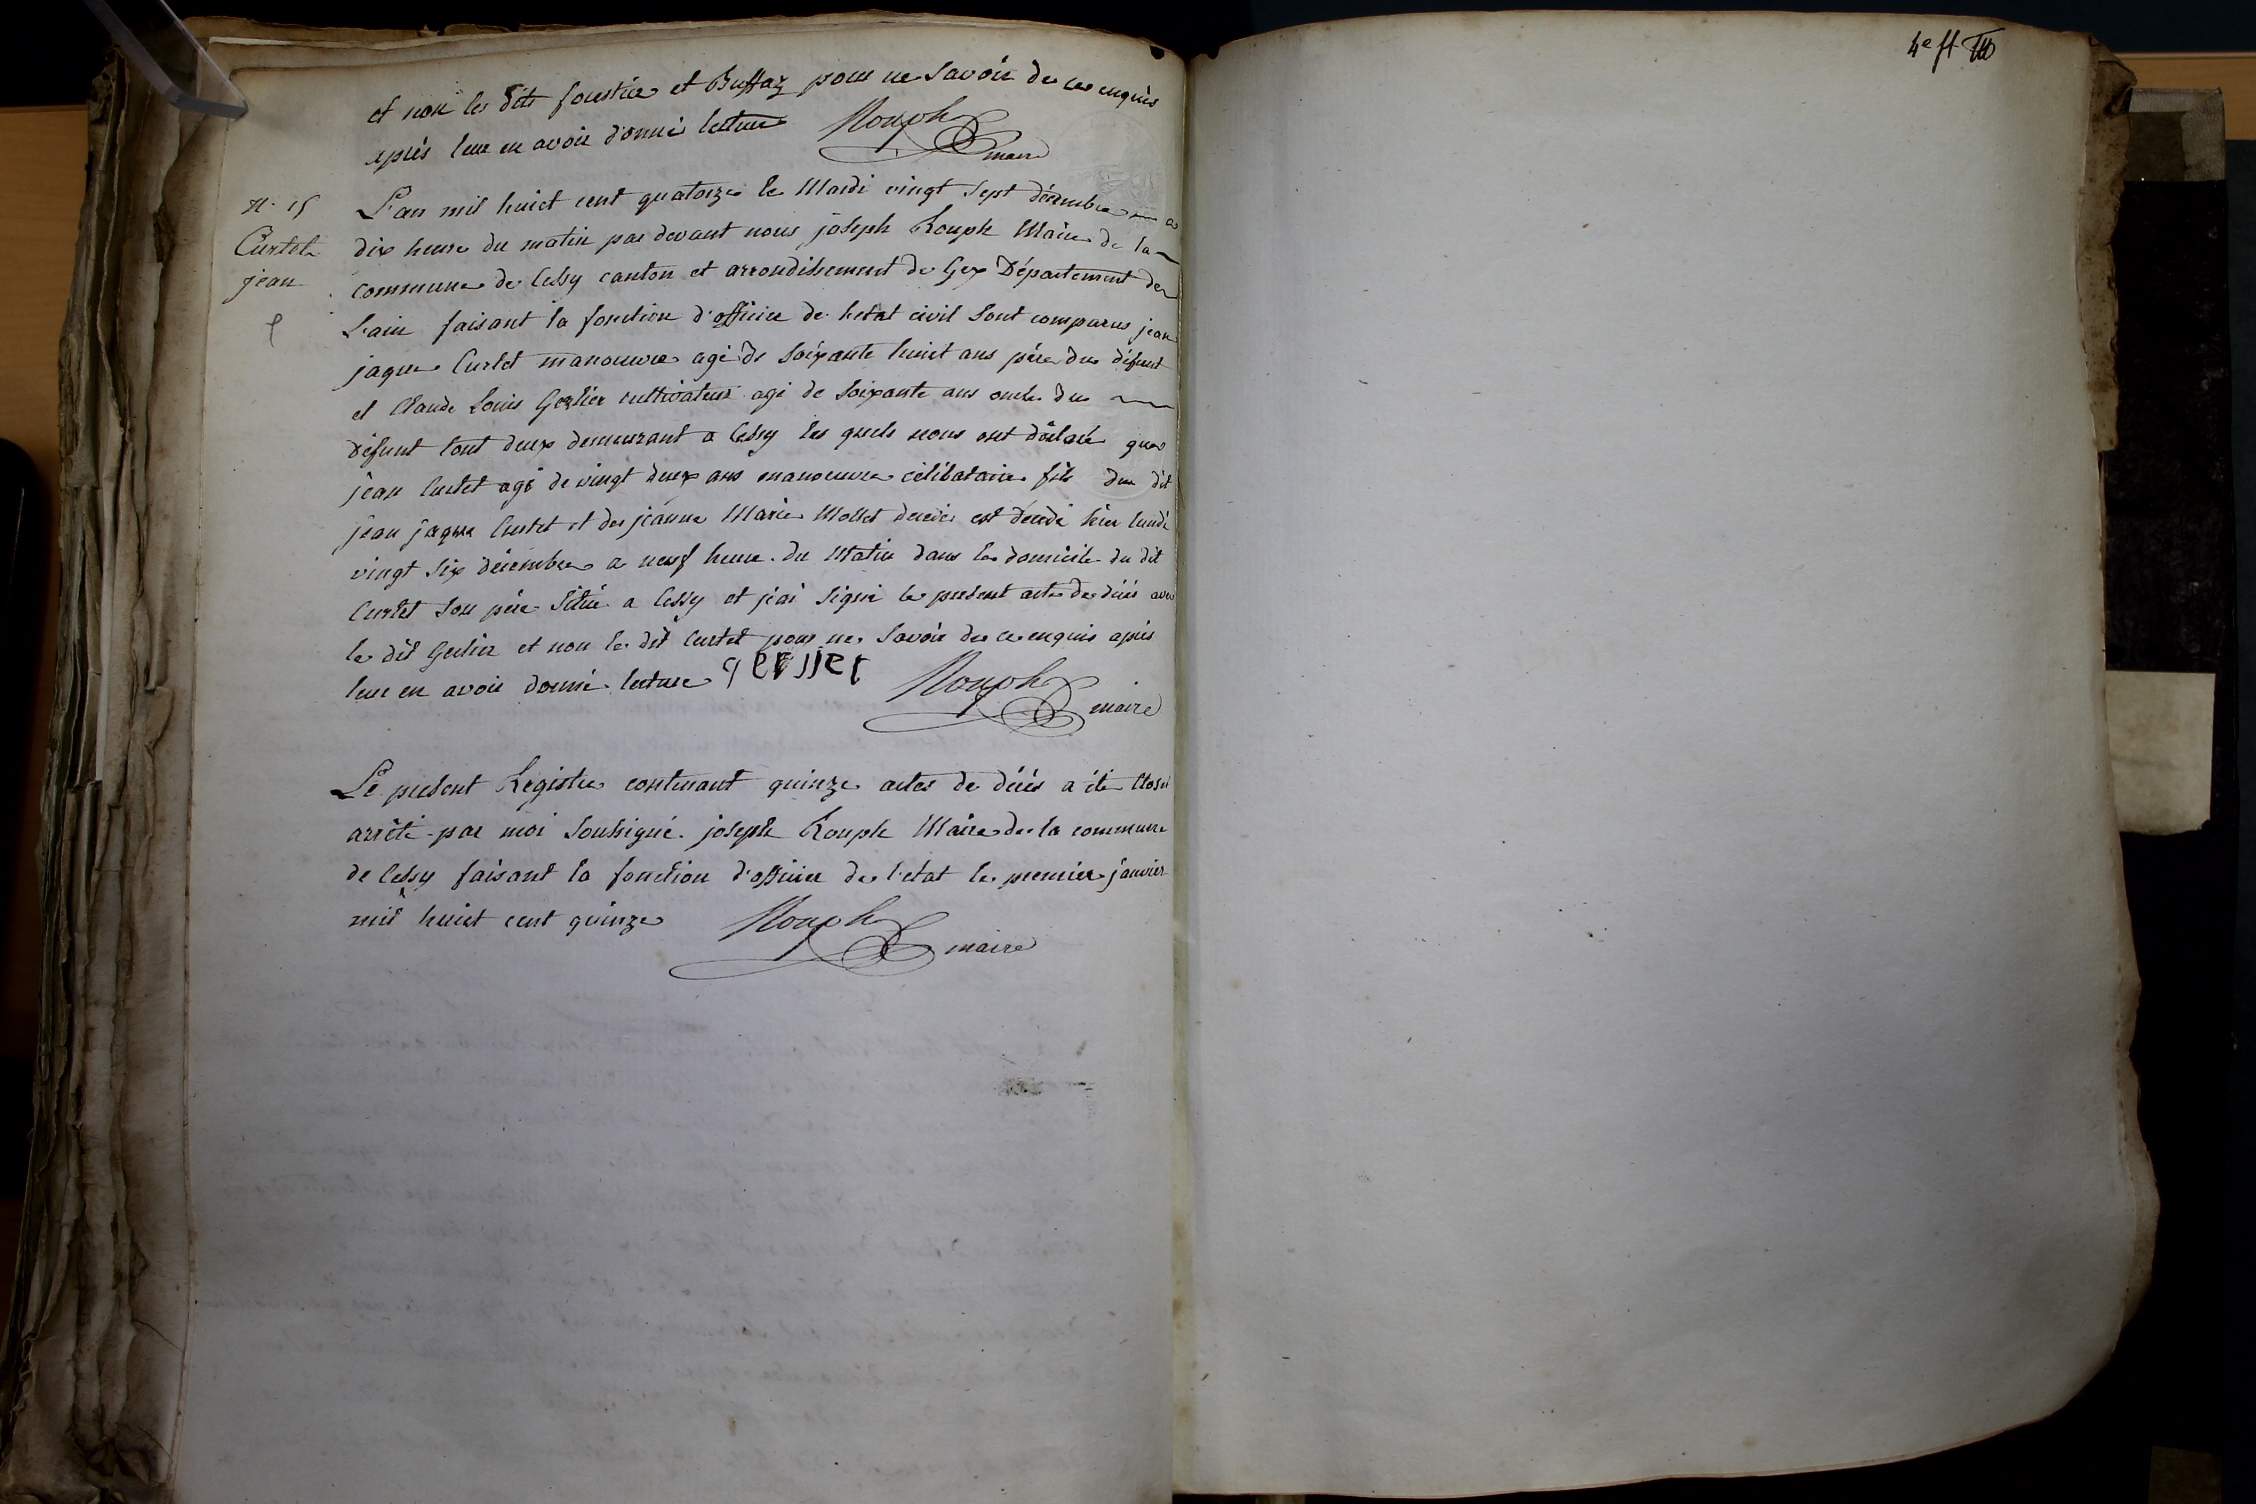 4e ff
et non les dits fourtier et Buffaz pour ne Savoir de ce enquis
après leur en avoir donné lecture Rouph
maire
N. 15
Curtet
jean
L'an mil huict cent quatorze le Mardi vingt Sept décembre a
dix heure du matin par devant nous joseph Rouph Maire de la
commune de Cessy canton et arrondissement de Gex Département de
L'ain faisant la fonction d'officier de letat civil Sont comparus jean
jaque Curtet manouvre agé de soixante huict ans père du défunt
et Claude Louis Gerlier cultivateur agé de soixante ans oncle du
défunt tout deux demeurant a Cessy les quels nous ont déclaré que
jean Curtet agé de vingt deux ans manouvre célibataire fils du dit
jean jaque Curtet et de jeanne Marie Mollet decedée est décédé hier lundi
vingt Six décembre a neuf heure du Matin dans le domicile du dit
Curtet Son père Situé a Cessy et j'ai Signé le present acte de décés avec
le dit Gerlier et non le dit Curtet pour ne Savoir de ce enquis après
leur en avoir donné lecture Rouph
maire
Le present Registre contenant quinze actes de décés a été Clos et
arrêté par moi Soussigné joseph Rouph Maire de la commune
de Cessy faisant la fonction d'officier de l'etat le premier janvier
mil huict cent quinze Rouph
maire